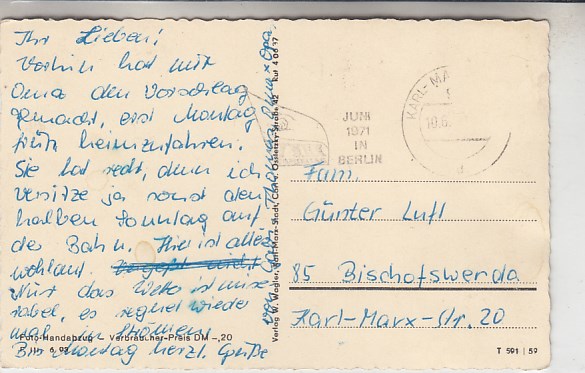 Ihr Lieben!
Vorhin hat mir
Oma den Vorschlag
gemacht, erst Montag
früh heimzufahren.
Sie hat recht, denn ich
versitze ja sonst den
halben Sonntag auf
der Bahn. Hier ist alles
wohlauf.
Nur das Wetter ist mise-
rabel, es regnet wieder
mal in Strömen.
Bis Montag herzl. Grüße
von Oma + Opa.
Foto-Handabzug - Verbraucher-Preis DM -,20
Verlag W. Wagler, Karl-Marx-Stadt, Straße 42
KARL-MA
JUNI
1971
IN
BERLIN
Fam.
Günter Luft
85 Bischofswerda
Karl-Marx-Str. 20
T 591 | 59